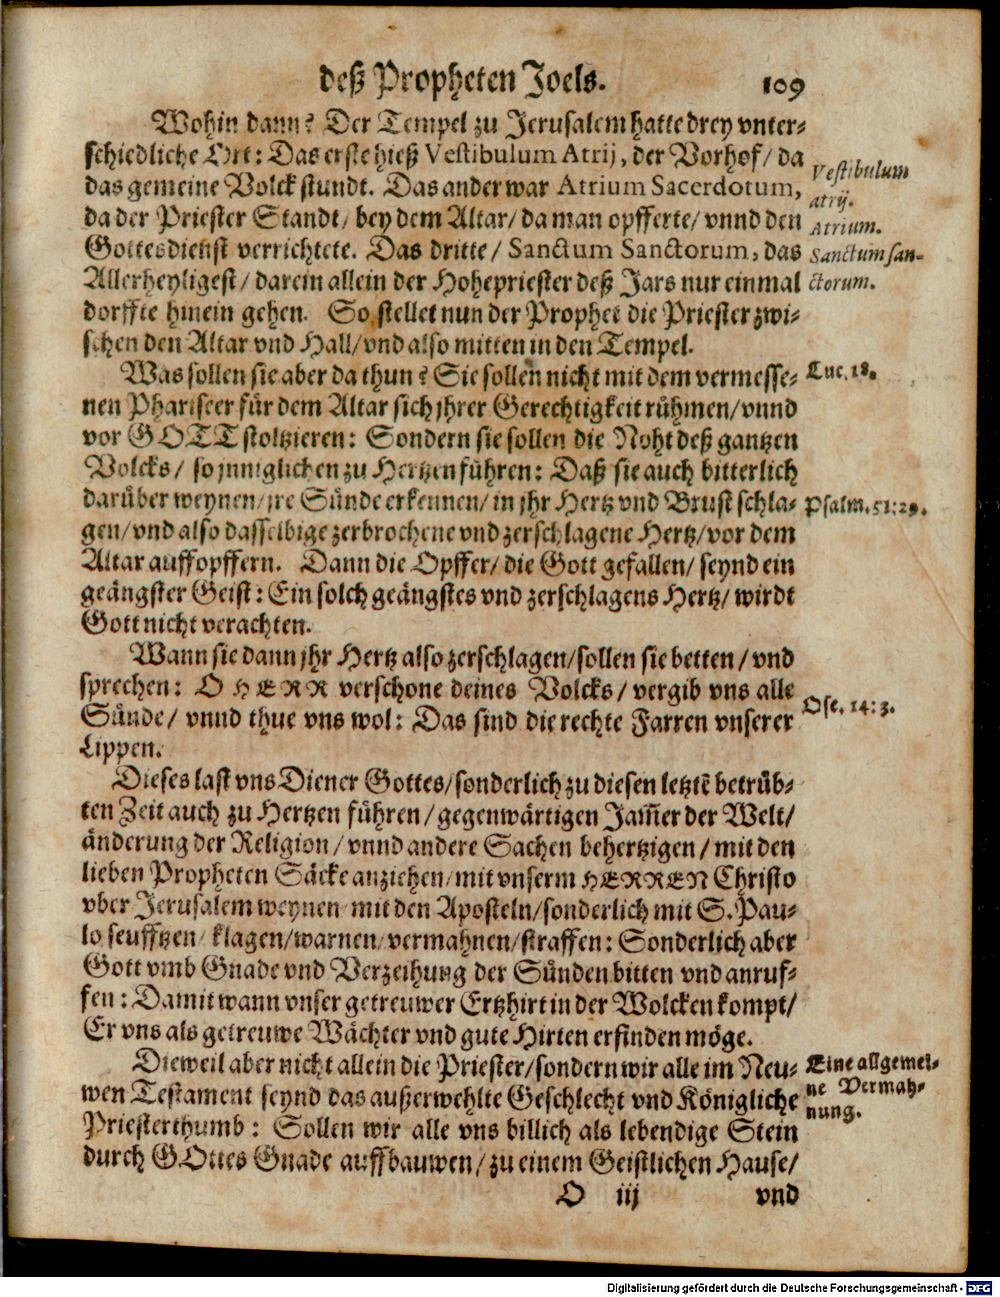 deß Propheten Joels. 109
Wohin dann? Der Tempel zu Jerusalem hatte drey vnter-
schiedliche Ort: Das erste hieß Vestibulum Atrij, der Vorhof/ da
das gemeine Volck stundt. Das ander war Atrium Sacerdotum,
da der Priester Standt/ bey dem Altar/ da man opfferte/ vnnd den
Gottesdienst verrichtete. Das dritte/ Sanctum Sanctorum, das
Allerheyligest/ darein allein der Hohepriester deß Jars nur einmal
dorffte hinein gehen. So stellet nun der Prophet die Priester zwi-
schen den Altar vnd Hall/ vnd also mitten in den Tempel.
Vestibulum
atrij.
Atrium.
Sanctum san-
ctorum.
Was sollen sie aber da thun? Sie sollen nicht mit dem vermesse-
nen Phariseer für dem Altar sich jhrer Gerechtigkeit rühmen/ vnnd
vor GOTT stoltzieren: Sondern sie sollen die Noht deß gantzen
Volcks/ so jnniglichen zu Hertzen führen: Daß sie auch bitterlich
darüber weynen/ jre Sünde erkennen/ in jhr Hertz vnd Brust schla-
gen/ vnd also dasselbige zerbrochene vnd zerschlagene Hertz/ vor dem
Altar auffopffern. Dann die Opffer/ die Gott gefallen/ seynd ein
geängster Geist: Ein solch geängstes vnd zerschlagens Hertz/ wirdt
Gott nicht verachten.
Luc. 18.
Psalm. 51:29.
Wann sie dann jhr Hertz also zerschlagen/ sollen sie betten/ vnd
sprechen: O HERR verschone deines Volcks/ vergib vns alle
Sünde/ vnnd thue vns wol: Das sind die rechte Farren vnserer
Lippen.
Ose. 14:3.
Dieses last vns Diener Gottes/ sonderlich zu diesen letztẽ betrüb-
ten Zeit auch zu Hertzen führen/ gegenwärtigen Jam̃er der Welt/
änderung der Religion/ vnnd andere Sachen behertzigen/ mit den
lieben Propheten Säcke anziehen/ mit vnserm HERREN Christo
vber Jerusalem weynen/ mit den Aposteln/ sonderlich mit S. Pau-
lo seufftzen/ klagen/ warnen/ vermahnen/ straffen: Sonderlich aber
Gott vmb Gnade vnd Verzeihung der Sünden bitten vnd anruf-
fen: Damit wann vnser getreuwer Ertzhirt in der Wolcken kompt/
Er vns als getreuwe Wächter vnd gute Hirten erfinden möge.
Dieweil aber nicht allein die Priester/ sondern wir alle im Neu-
wen Testament seynd das außerwehlte Geschlecht vnd Königliche
Priesterthumb: Sollen wir alle vns billich als lebendige Stein
durch GOttes Gnade auffbauwen/ zu einem Geistlichen Hause/
Eine allgemei-
ne Vermah-
nung.
O iij vnd
Digitalisierung gefördert durch die Deutsche Forschungsgemeinschaft - DFG